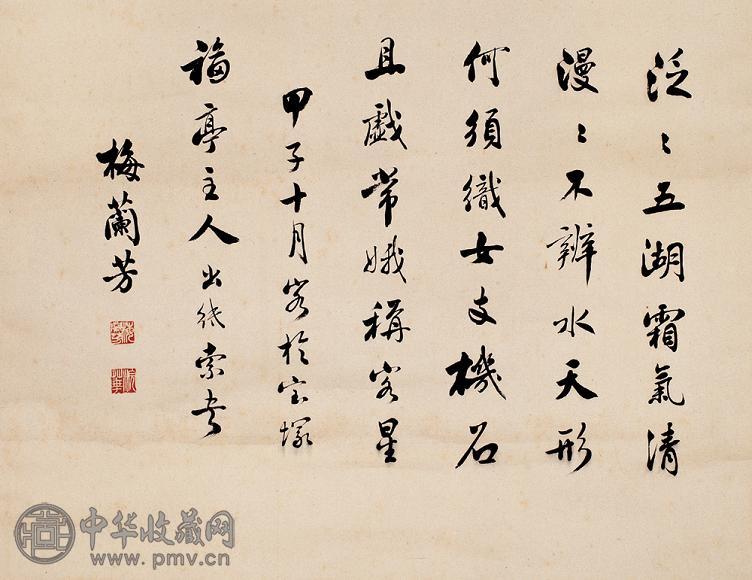 泛〻五湖霜氣清
漫〻不辨水天形
何須織女支機石
且戲常娥稱客星
甲子十月客於宝塚
福亭主人出紙索書
梅蘭芳
中华收藏网
www.pmv.cn